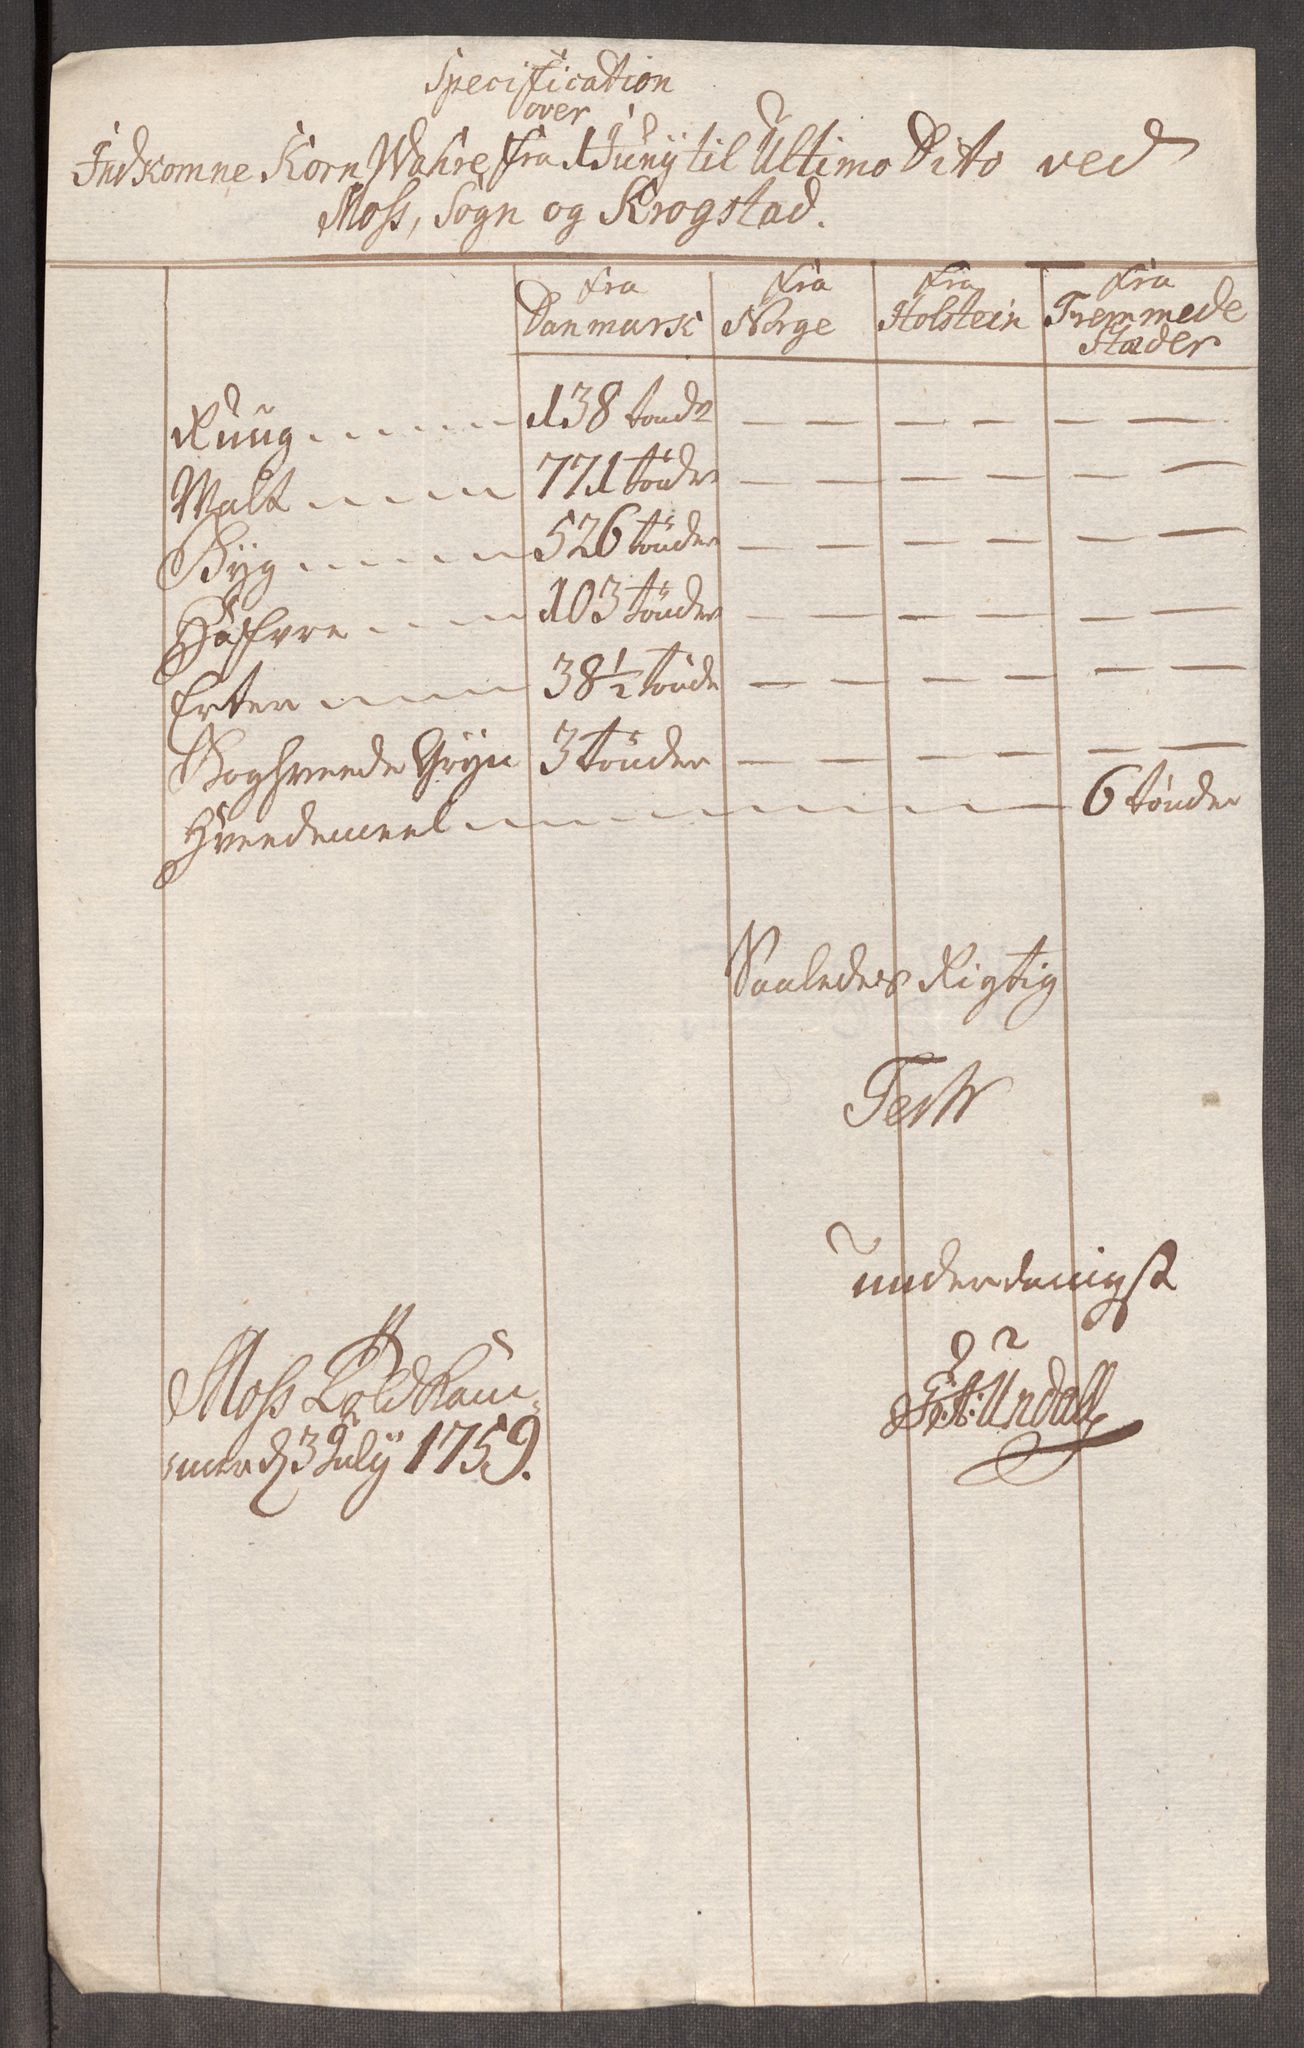 Specification
over
Indkomne Korn Wahre fra 1 Junÿ til Ultimo Dito ved
Moss, Sogn og Krogstad.
fra Danmark fra Norge fra Holstein fra Fremmede Stæder
Ruug 138 tønd — — — — — —
Malt 771 tönder — — — — — —
Bÿg 526 tönder — — — — — —
Hafvre 103 tönder — — — — — —
Erter 38½ tönde — — — — — —
Boghveede Grÿn 3 tönder — — — — — —
Hveedemeel 6 tønder
Saaledes Rigtig
Test
underdanigst
Moss Toldkam-
mer d 3 Julÿ 1759.
Undall